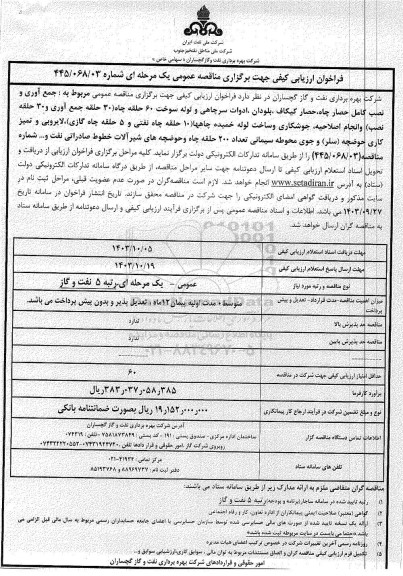 شرکت ملی نفت ایران
شرکت ملی مناطق نفتخیز جنوب
شرکت بهره برداری نفت و گاز گچساران (سهامی خاص)
فراخوان ارزیابی کیفی جهت برگزاری مناقصه عمومی یک مرحله ای شماره ۴۴۵/۰۶۸/۰۳
شرکت بهره برداری نفت و گاز گچساران در نظر دارد فراخوان ارزیابی کیفی جهت برگزاری مناقصه عمومی مربوط به : جمع آوری و
نصب کامل حصار چاه،حصار کیکاف ،بلودان ،ادوات سرچاهی و لوله سوخت ۶۰ حلقه چاه(۳۰ حلقه جمع آوری و۳۰ حلقه
نصب) وانجام اصلاحیه، جوشکاری وساخت لوله خمیده چاهها(۱۰ حلقه چاه نفتی و ۵ حلقه چاه گازی)،لایروبی و تمیز
کاری حوضچه (سلر) و جوی محوطه سیمانی تعداد ۲۰۰ حلقه چاه وحوضچه های شیرآلات خطوط صادراتی نفت و... شماره
مناقصه(۴۴۵/۰۶۸/۰۳) را از طریق سامانه تدارکات الکترونیکی دولت برگزار نماید. کلیه مراحل برگزاری فراخوان ارزیابی از دریافت و
تحویل اسناد استعلام ارزیابی کیفی تا ارسال دعوتنامه جهت سایر مراحل مناقصه، از طریق درگاه سامانه تدارکات الکترونیکی دولت
(ستاد) به آدرس www.setadiran.ir انجام خواهد شد. لازم است مناقصه‌گران در صورت عدم عضویت قبلی، مراحل ثبت نام در
سایت مذکور و دریافت گواهی امضای الکترونیکی را جهت شرکت در مناقصه محقق سازند. تاریخ انتشار فراخوان در سامانه تاریخ
۱۴۰۳/۰۹/۲۷ می باشد. اطلاعات و اسناد مناقصه عمومی پس از برگزاری فرآیند ارزیابی کیفی و ارسال دعوتنامه از طریق سامانه ستاد
به مناقصه گران ارسال خواهد شد.
مهلت دریافت اسناد استعلام ارزیابی کیفی
۱۴۰۳/۱۰/۰۵
مهلت ارسال پاسخ استعلام ارزیابی کیفی
۱۴۰۳/۱۰/۱۹
نوع مناقصه و رتبه مورد نیاز
عمومی - یک مرحله ای-رتبه ۵ نفت و گاز
میزان اهمیت مناقصه-مدت قرارداد- تعدیل و پیش پرداخت
متوسط - مدت اولیه پیمان ۱۲ماه - تعدیل پذیر و بدون پیش پرداخت می باشد.
مناقصه حد پذیرش بالا
مناقصه حد پذیرش پایین
حداقل امتیاز ارزیابی کیفی جهت شرکت در مناقصه
۶۰
برآورد کارفرما
نوع و مبلغ تضمین شرکت در فرآیند ارجاع کار پیمانکاری
۱۹٫۱۵۲٫۰۰۰٫۰۰۰ ریال بصورت ضمانتنامه بانکی
اطلاعات تماس دستگاه مناقصه گزار
آدرس شرکت بهره برداری نفت و گاز گچساران
تلفن های سامانه ستاد
مرکز تماس: ۴۱۹۳۴-۰۲۱
دفتر ثبت نام: ۸۸۹۶۹۷۳۷ و ۸۵۱۹۳۷۶۸
مناقصه گران متقاضی ملزم به ارائه مدارک زیر از طریق سامانه ستاد می باشند:
امور حقوقی و قراردادهای شرکت بهره برداری نفت و گاز گچساران